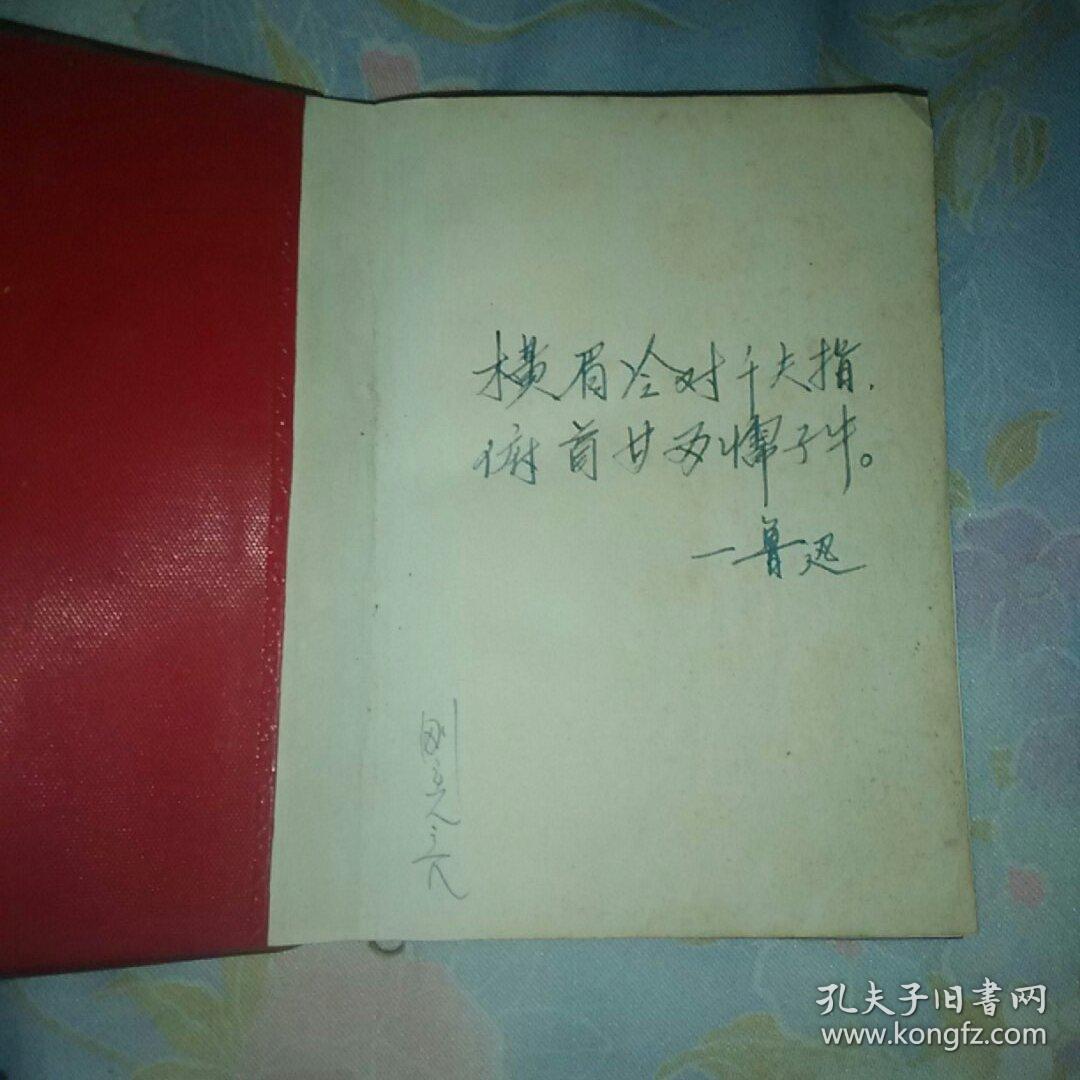 横眉冷对千夫指，
俯首甘为孺子牛。
—鲁迅
孔夫子旧書网
www.kongfz.com